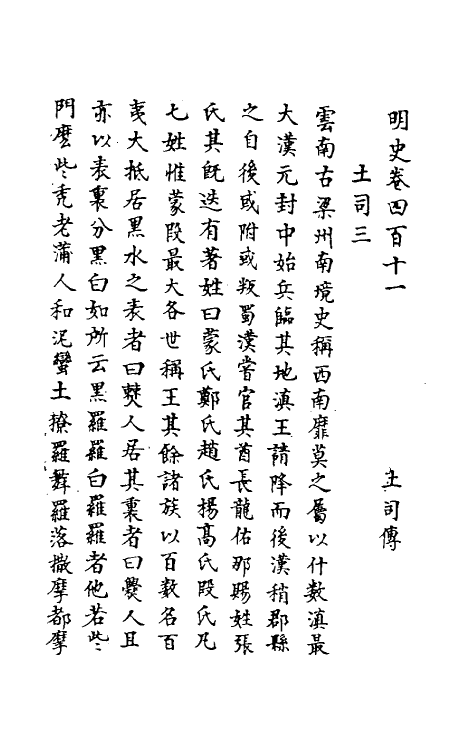 明史卷四百十一　土司傳
土司三
雲南古梁州南境史稱西南靡莫之屬以什數滇最
大漢元封中始兵臨其地滇王請降而後漢稍郡縣
之自後或附或叛蜀漢嘗官其酋長龍佑那賜姓張
氏其旣迭有著姓曰蒙氏鄭氏趙氏楊高氏段氏凡
七姓惟蒙段最大各世稱王其餘諸族以百數名百
夷大抵居黑水之表者曰僰人居其裏者曰爨人且
亦以表裏分黑白如所云黑羅羅白羅羅者他若些
門麽些禿老蒲人和泥蠻土獠羅舞羅落撒摩都摩